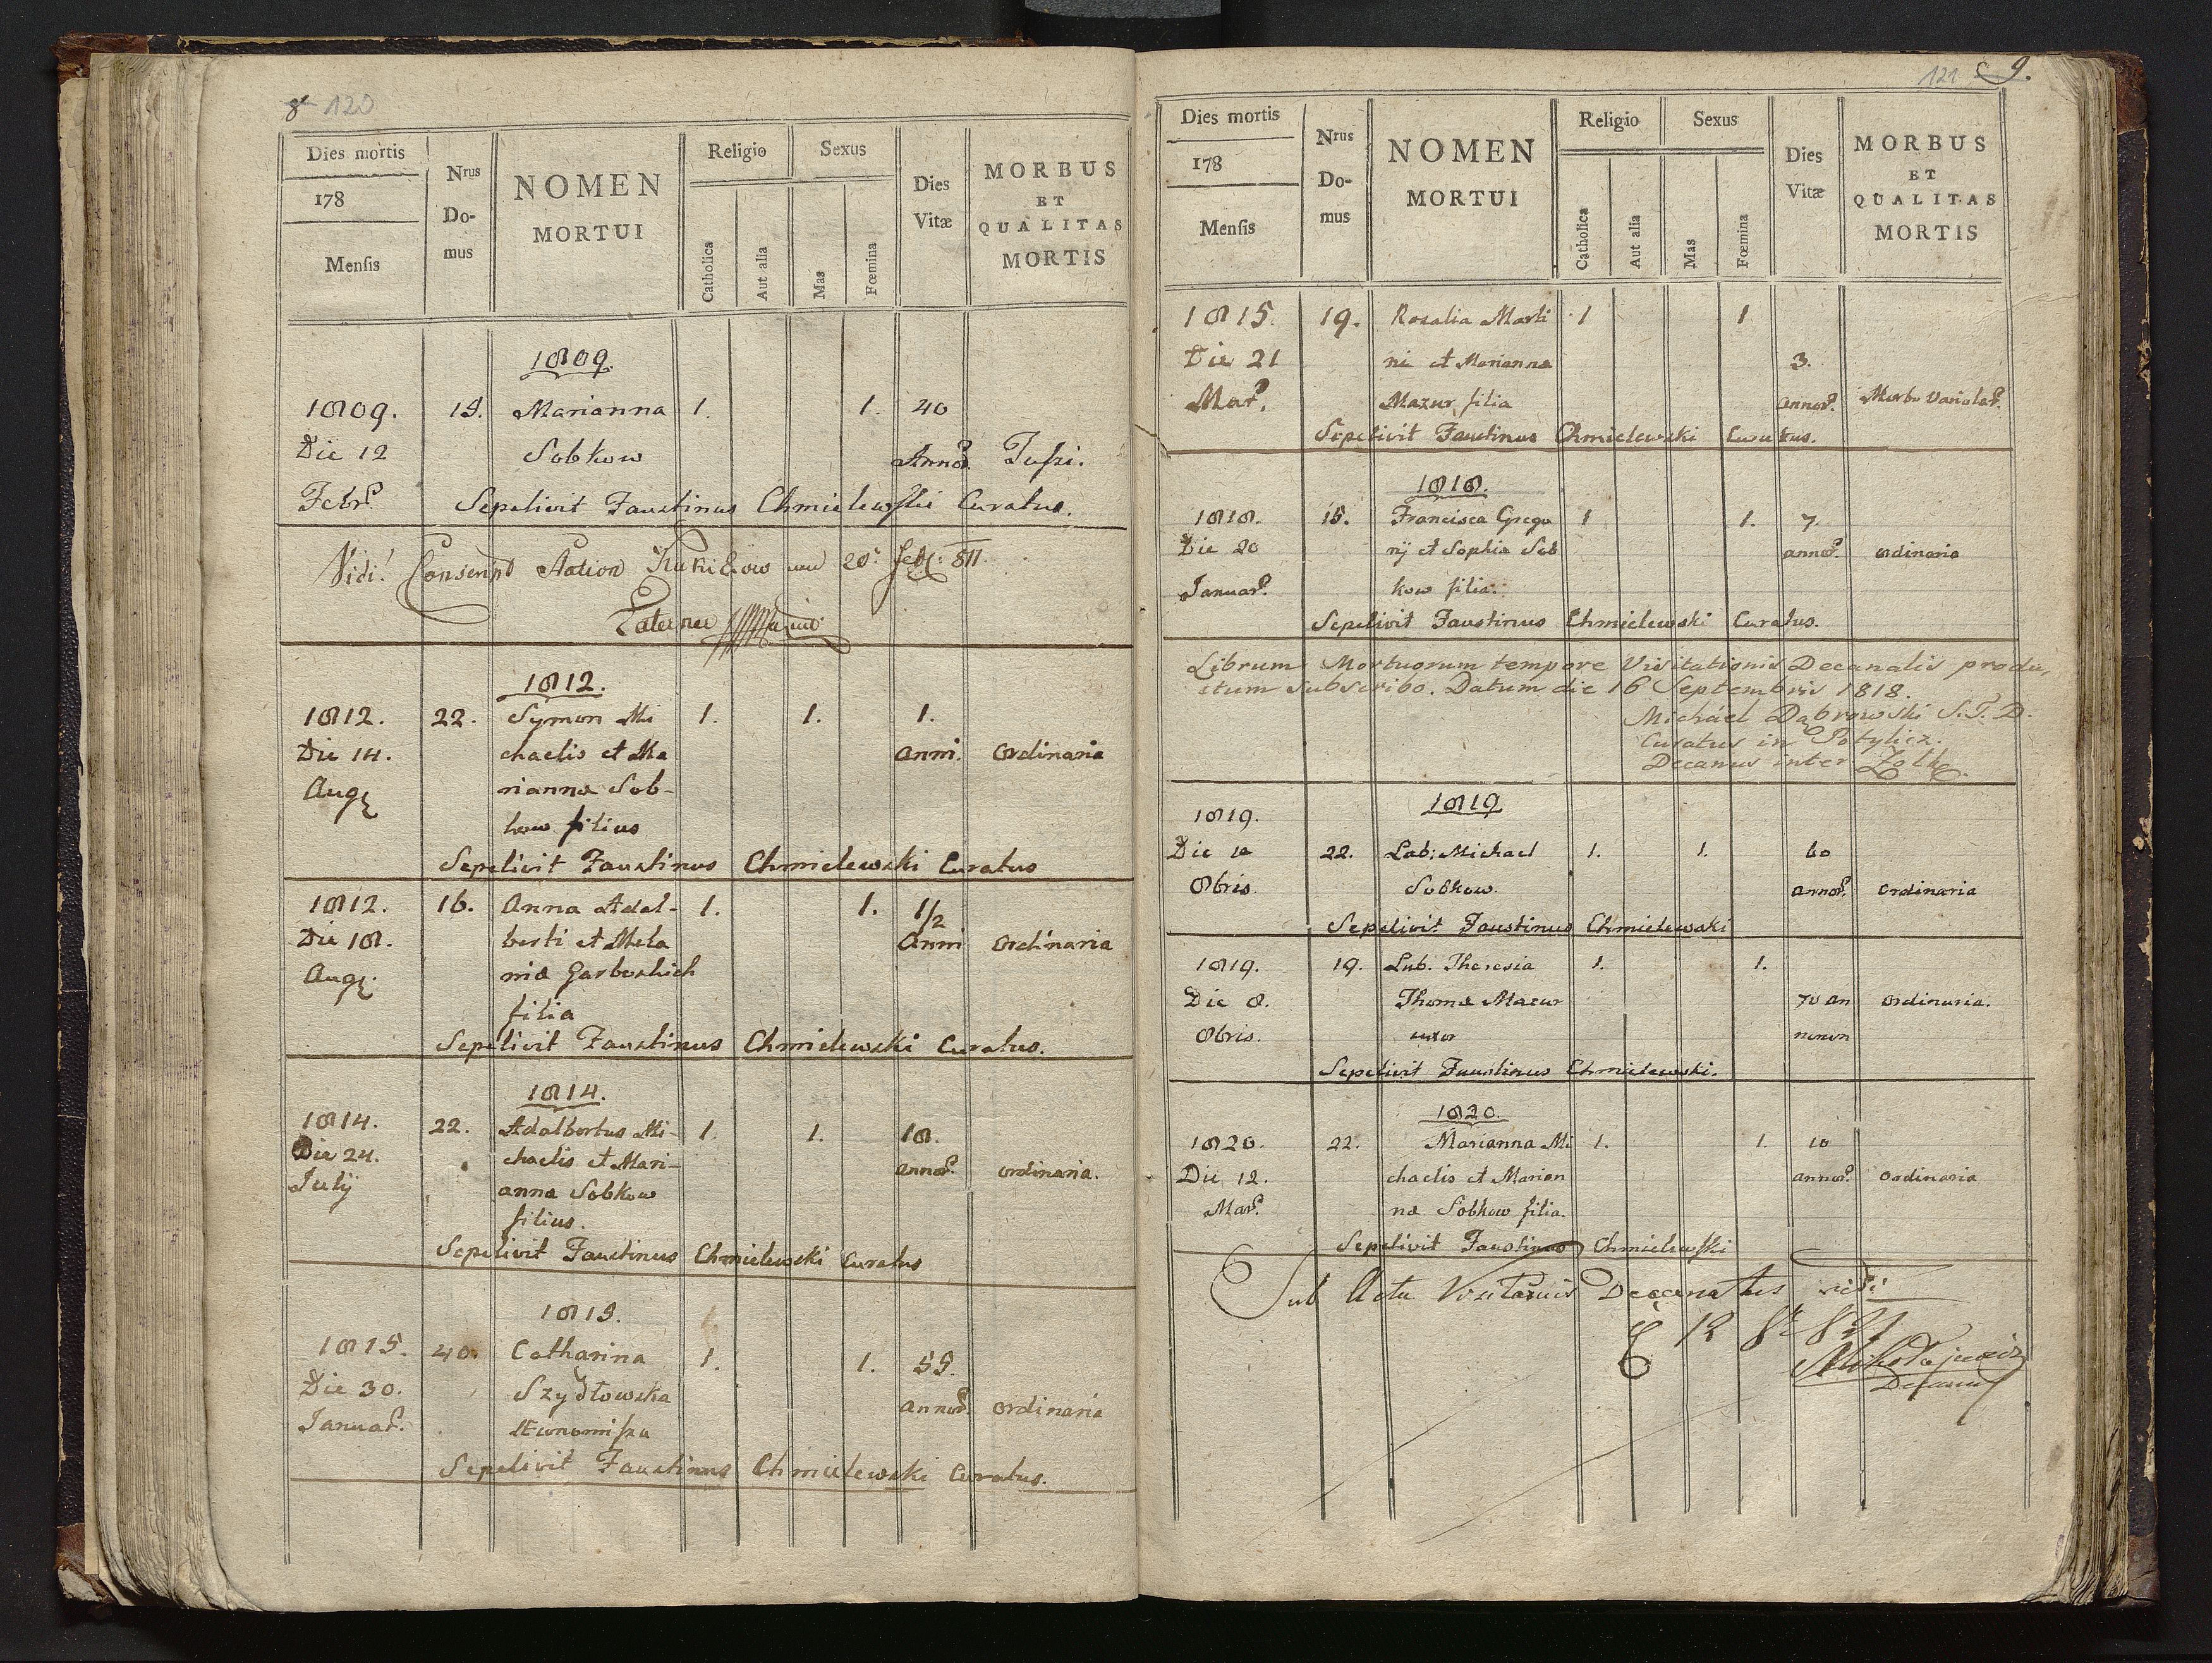 8 120
Dies mortis
178
Mensis
Nrus Domus
NOMEN MORTUI
Religio
Catholica
Aut alia
Sexus
Mas
Fœmina
Dies Vitæ
MORBUS ET QUALITAS MORTIS
1809.
1809. 15. Marianna 1. 1. 40
Die 12 Sobkow Annor. Tussi.
Febr.
Sepelivit Faustinus Chmielewski Curatus.
Vidi! Conscript Station 20. Feb: 811.
1812.
1812. 22. Symon Mi 1. 1. 1.
Die 14. chaelis et Ma anni. ordinaria
Aug rianna Sob-
kow filius
Sepelivit Faustinus Chmielewski Curatus
1812. 16. Anna Adal- 1. 1. 1/2
Die 18. berti et Mela Anni ordinaria
Aug. niæ Garboshich
filia
Sepelivit Faustinus Chmielewski Curatus.
1814.
1814. 22. Adalbertus Mi- 1. 1. 18.
Die 24. chaelis et Mari- annor. ordinaria.
Julij anna Sobkow
filius.
Sepelivit Faustinus Chmielewski Curatus
1815.
1815. 40. Catharina 1. 1. 55.
Die 30. Szydłowska annor. ordinaria
Januar. Œconomissa
Sepelivit Faustinus Chmielewski Curatus.
121 9.
Dies mortis
178
Mensis
Nrus Domus
NOMEN MORTUI
Religio
Catholica
Aut alia
Sexus
Mas
Fœmina
Dies Vitæ
MORBUS ET QUALITAS MORTIS
1815. 19. Rosalia Marti 1 1
Die 21 ni et Marianna 3.
Mar. Mazur filia annor. Morbo Variolar.
Sepelivit Faustinus Chmielewski Curatus.
1818.
1818. 15. Francisca Grego 1 1. 7.
Die 20 rij et Sophia Sob annor. ordinaria
Januar. kow filia.
Sepelivit Faustinus Chmielewski Curatus.
Librum Mortuorum tempore Visitationis Decanalis produ,
ctum subscribo. Datum die 16 Septembris 1818.
Michael Dąbrowski S.T.D.
Curatus in Potylicz.
Decanus inter Zolk.
1819
1819.
Die 10 22. Lab: Michael 1. 1. 60
8bris. Sobkow. annor. ordinaria
Sepelivit Faustinus Chmielewski
1819. 19. Lab. Theresia 1. 1.
Die 8. Thomæ Mazur 70 an ordinaria.
8bris. uxor norum
Sepelivit Faustinus Chmielewski.
1820.
1820. 22. Marianna Mi 1. 1. 10
Die 12. chaelis et Marian annor. ordinaria
Mar. næ Sobkow filia.
Sepelivit Faustinus Chmielewski
Sub Actu Decanatus vidi